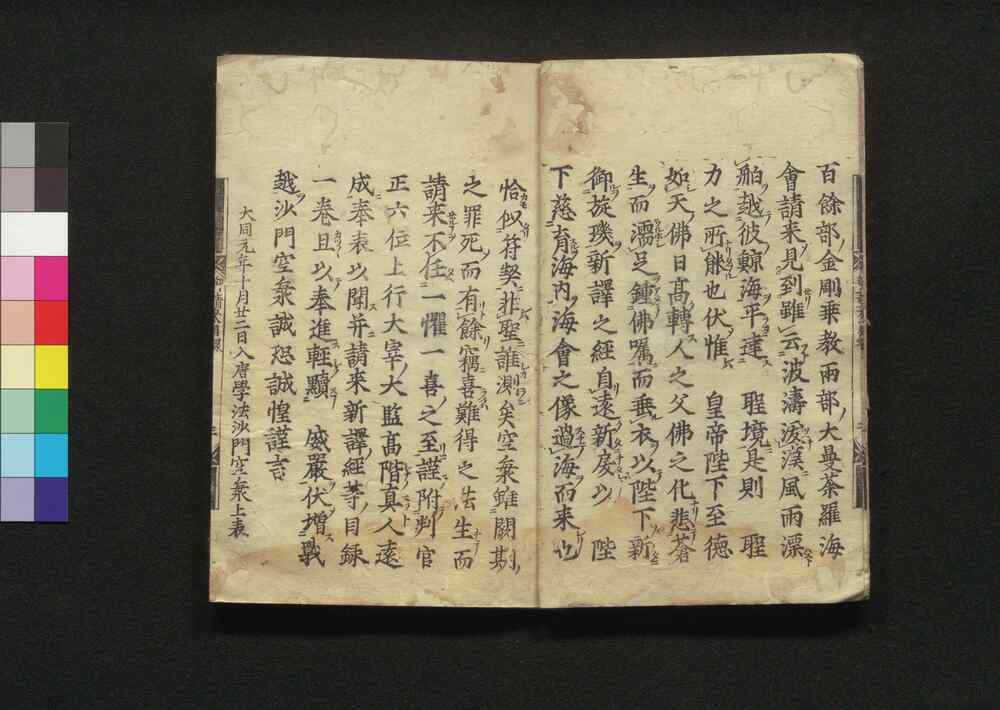 百餘部金剛乘教兩部大曼荼羅海
會請來見到雖云波濤溌漢風雨漂
舶越彼鯨海平達聖境是則聖
力之所能也伏惟皇帝陛下至德
如天佛日高轉人之父佛之化悲蒼
生而濡足鍾佛囑而垂衣以陛下新
御旋璣新譯之經自遠新戾以陛
下慈育海內海會之像過海而來也
恰似符契非聖誰測矣空海雖闕期
之罪死而有餘竊喜難得之法生而
請來不任一懼一喜之至謹附判官
正六位上行大宰大監高階真人遠
成奉表以聞并請來新譯經等目録
一卷且以奉進輕黷威嚴伏增戰
越沙門空海誠恐誠惶謹言
大同元年十月廿二日入唐學法沙門空海上表